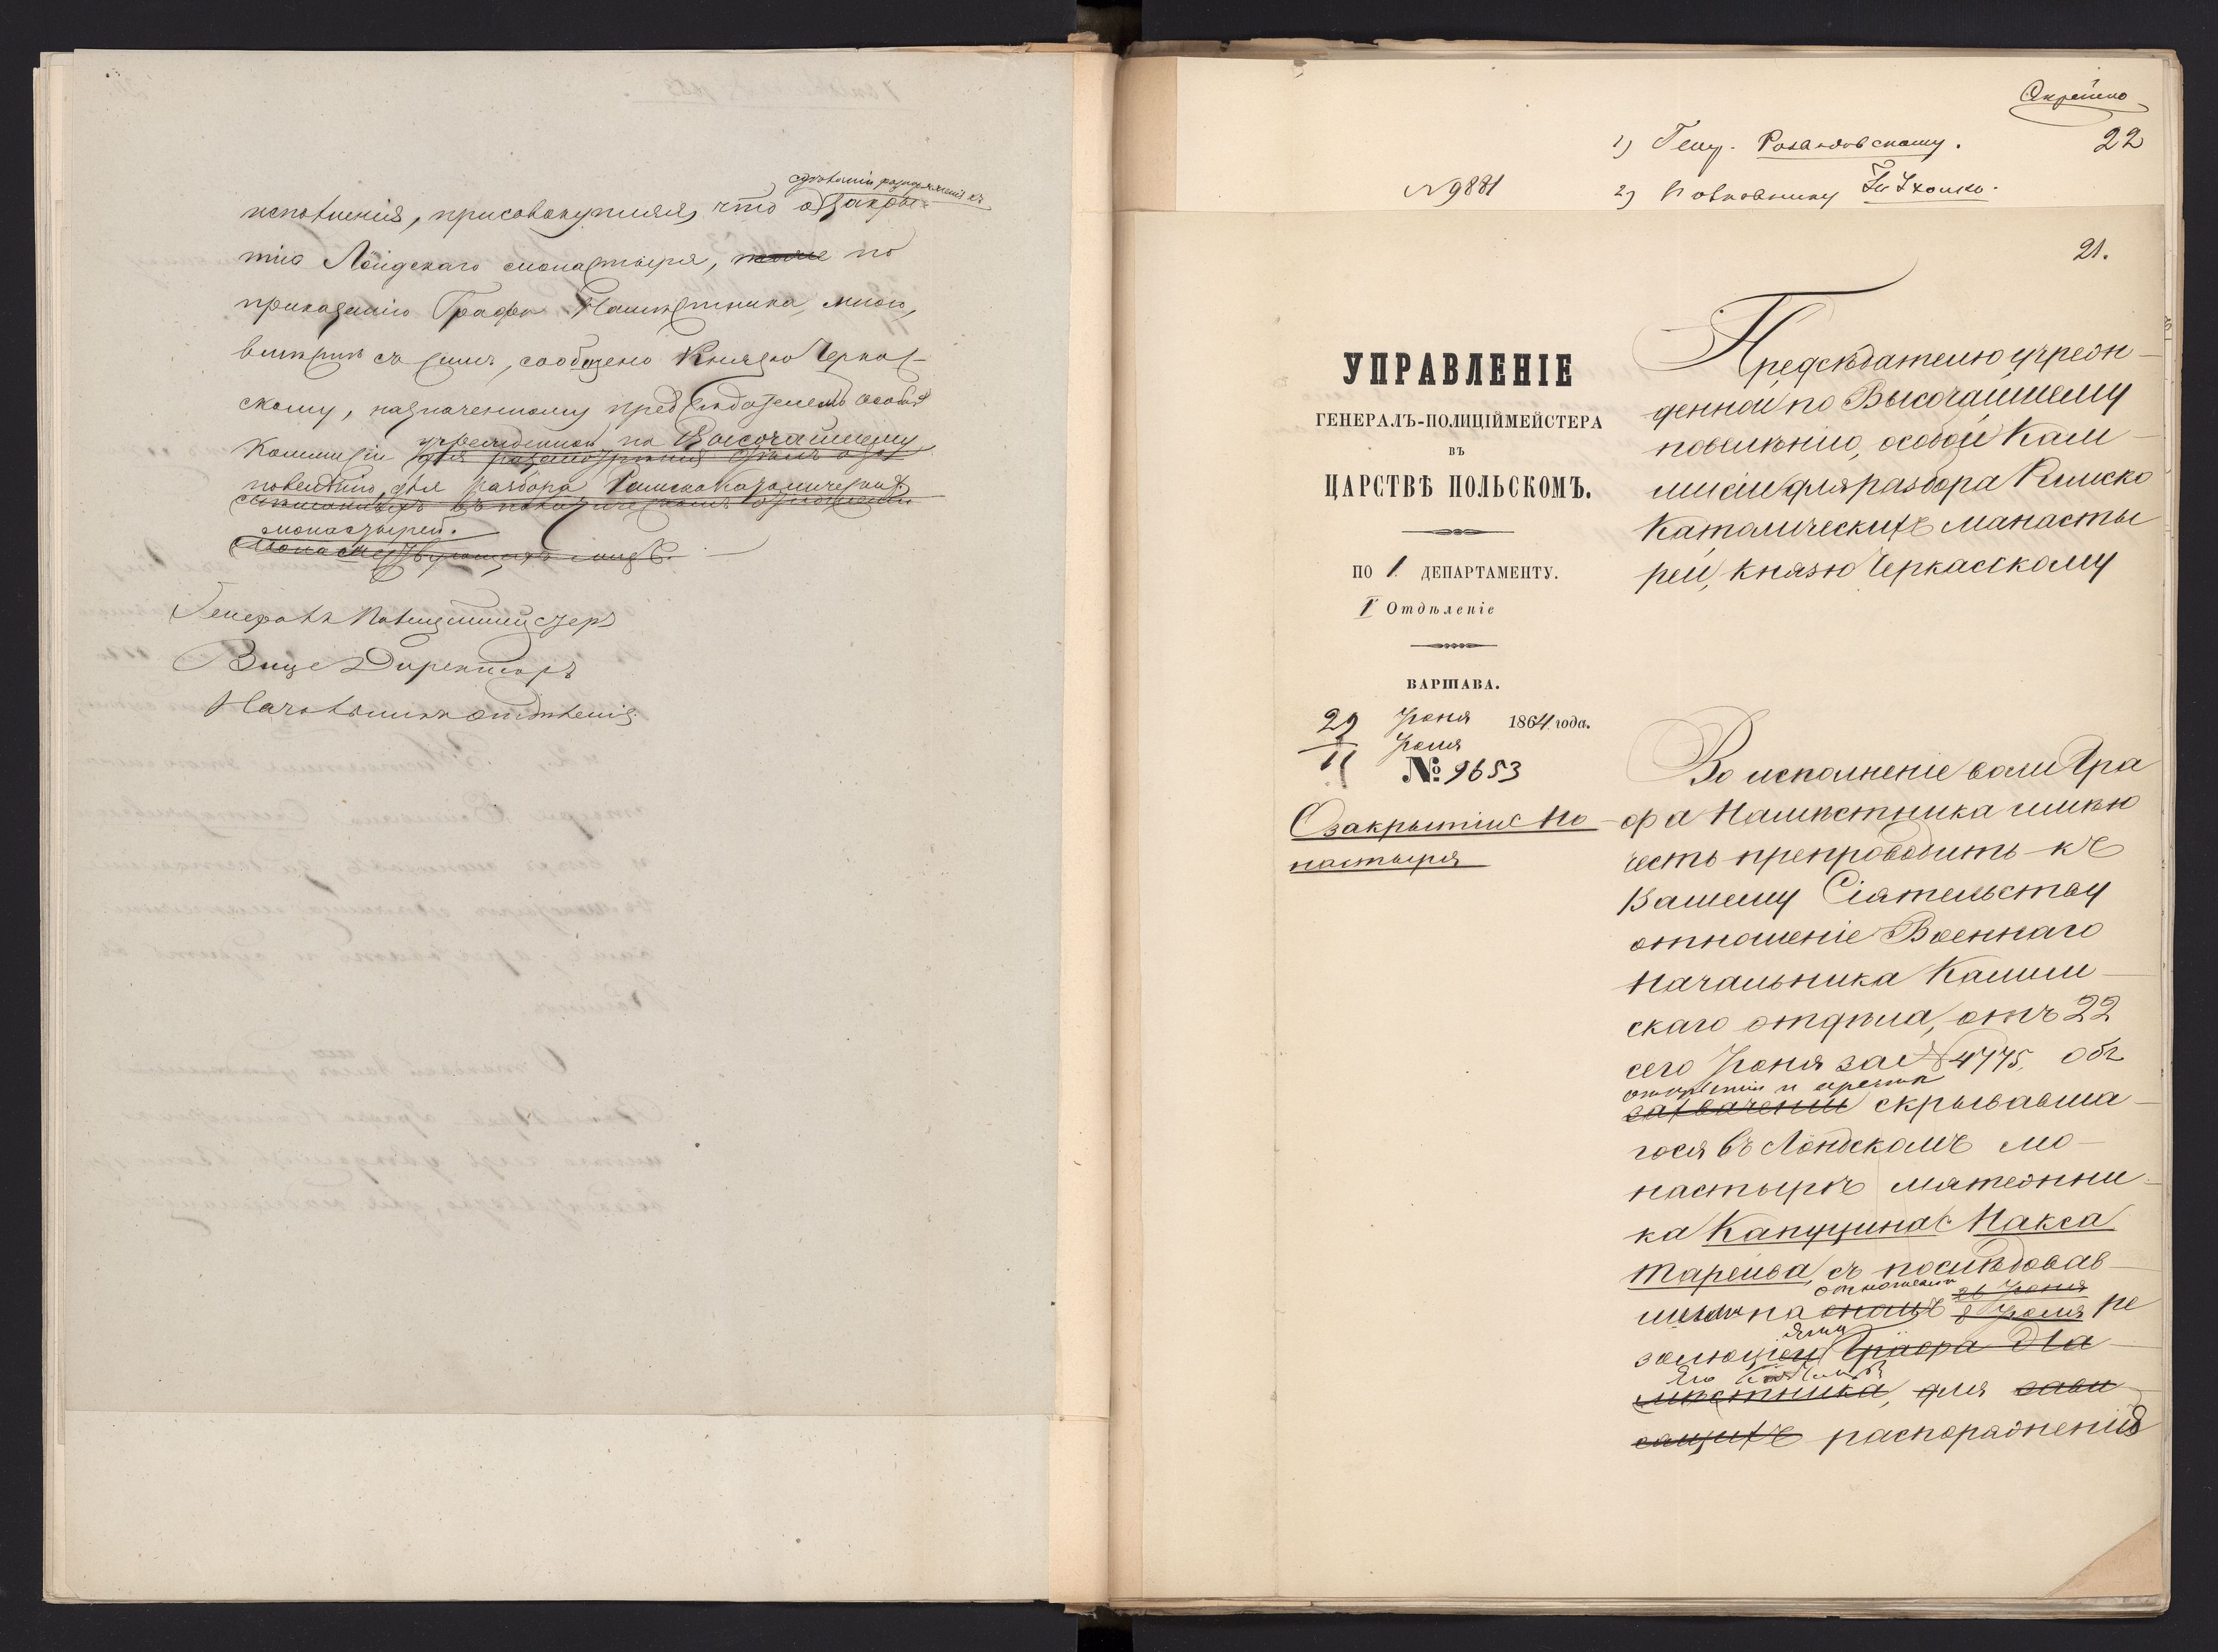 исполненія, присовокупляя, что о закры-
тіи Лёндскаго монастыря, по
приказанію Графа Намѣстника, мною,
вмѣстѣ съ симъ, сообщено Князю Черкас-
скому, назначенному предсѣдателемъ особой
Коммисіи учрежденной по Высочайшему
повелѣнію, для разбора Римско Католическихъ
монастырей.
Генералъ Полиціймейстеръ
Вице Директоръ
Начальникъ отдѣленія
22
1) Гену.
№ 9881
2) Полковнику
21.
УПРАВЛЕНІЕ
ГЕНЕРАЛЪ-ПОЛИЦІЙМЕЙСТЕРА
ВЪ
ЦАРСТВѢ ПОЛЬСКОМЪ.
ПО I ДЕПАРТАМЕНТУ.
I Отдѣленіе
ВАРШАВА.
29 Іюня 1864 года.
11 Іюля
№ 9653
О закрытіи Мо-
настыря
Предсѣдателю учреж-
денной по Высочайшему
повелѣнію, особой Ком-
мисіи для разбора Римско
Католическихъ Монасты
рей, Князю Черкасскому
Во исполненіе воли Гра
фа Намѣстника имѣю
честь препроводить къ
Вашему Сіятельству
отношеніе Военнаго
Начальника Калиш-
скаго отдѣла, отъ 22
сего Іюня за № 4775, объ
открытіи и арестѣ
захваченіи скрывавша-
гося въ Лондскомъ мо-
настырѣ мятежни-
ка Капуцина Макса
Тарейва, съ послѣдовав-
шею на отношеніи 26 Іюня
8 Іюля ре
золюціею Графа На-
мѣстника, для зави
сящихъ распоряженій